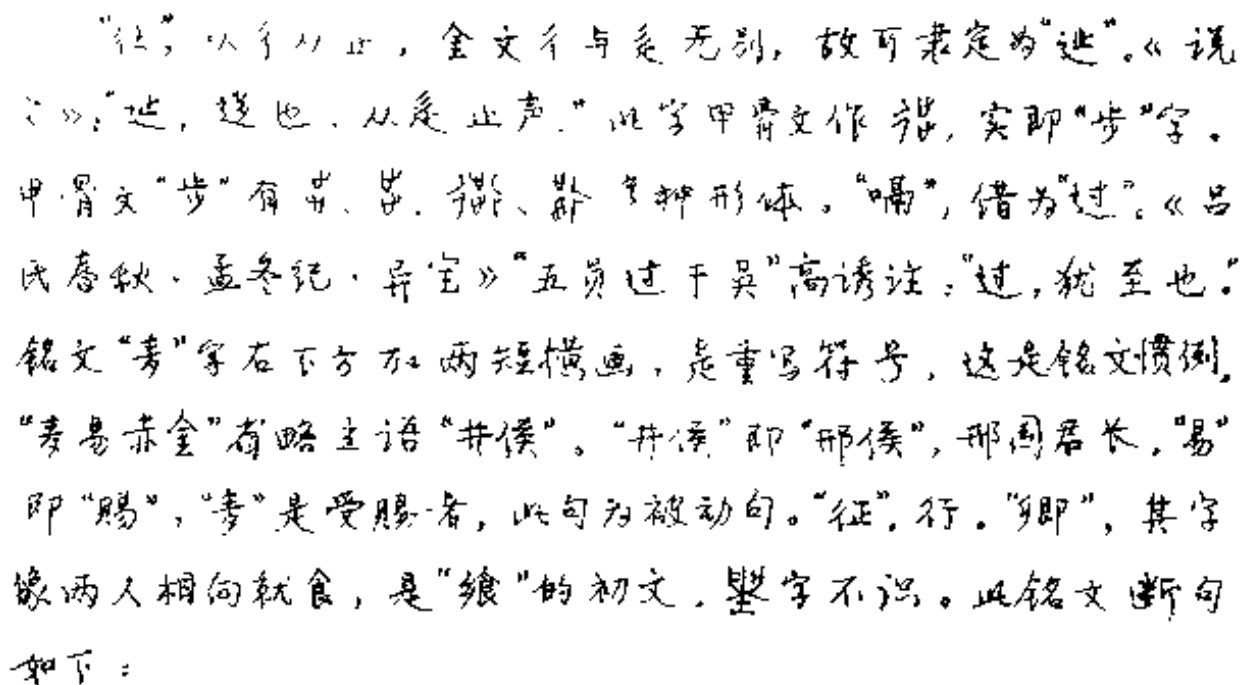 “彳止”，从彳从止，金文彳与辵无别，故可隶定为“䢌”。《说
文》：“䢌，迻也，从辵止声。”此字甲骨文作，实即“步”字。
甲骨文“步”有、、、种形体。“嗝”，借为“过”。《吕
氏春秋·孟冬纪·异宝》“五员过于吴”高诱注：“过，犹至也。”
铭文“麦”字右下方加两短横画，是重写符号，这是铭文惯例。
“麦易赤金”省略主语“井侯”。“井侯”即“邢侯”，邢国君长。“易”
即“赐”，“麦”是受赐者，此句为被动句。“征”，行。“卿”，其字
像两人相向就食，是“飨”的初文。字不识。此铭文断句
如下：